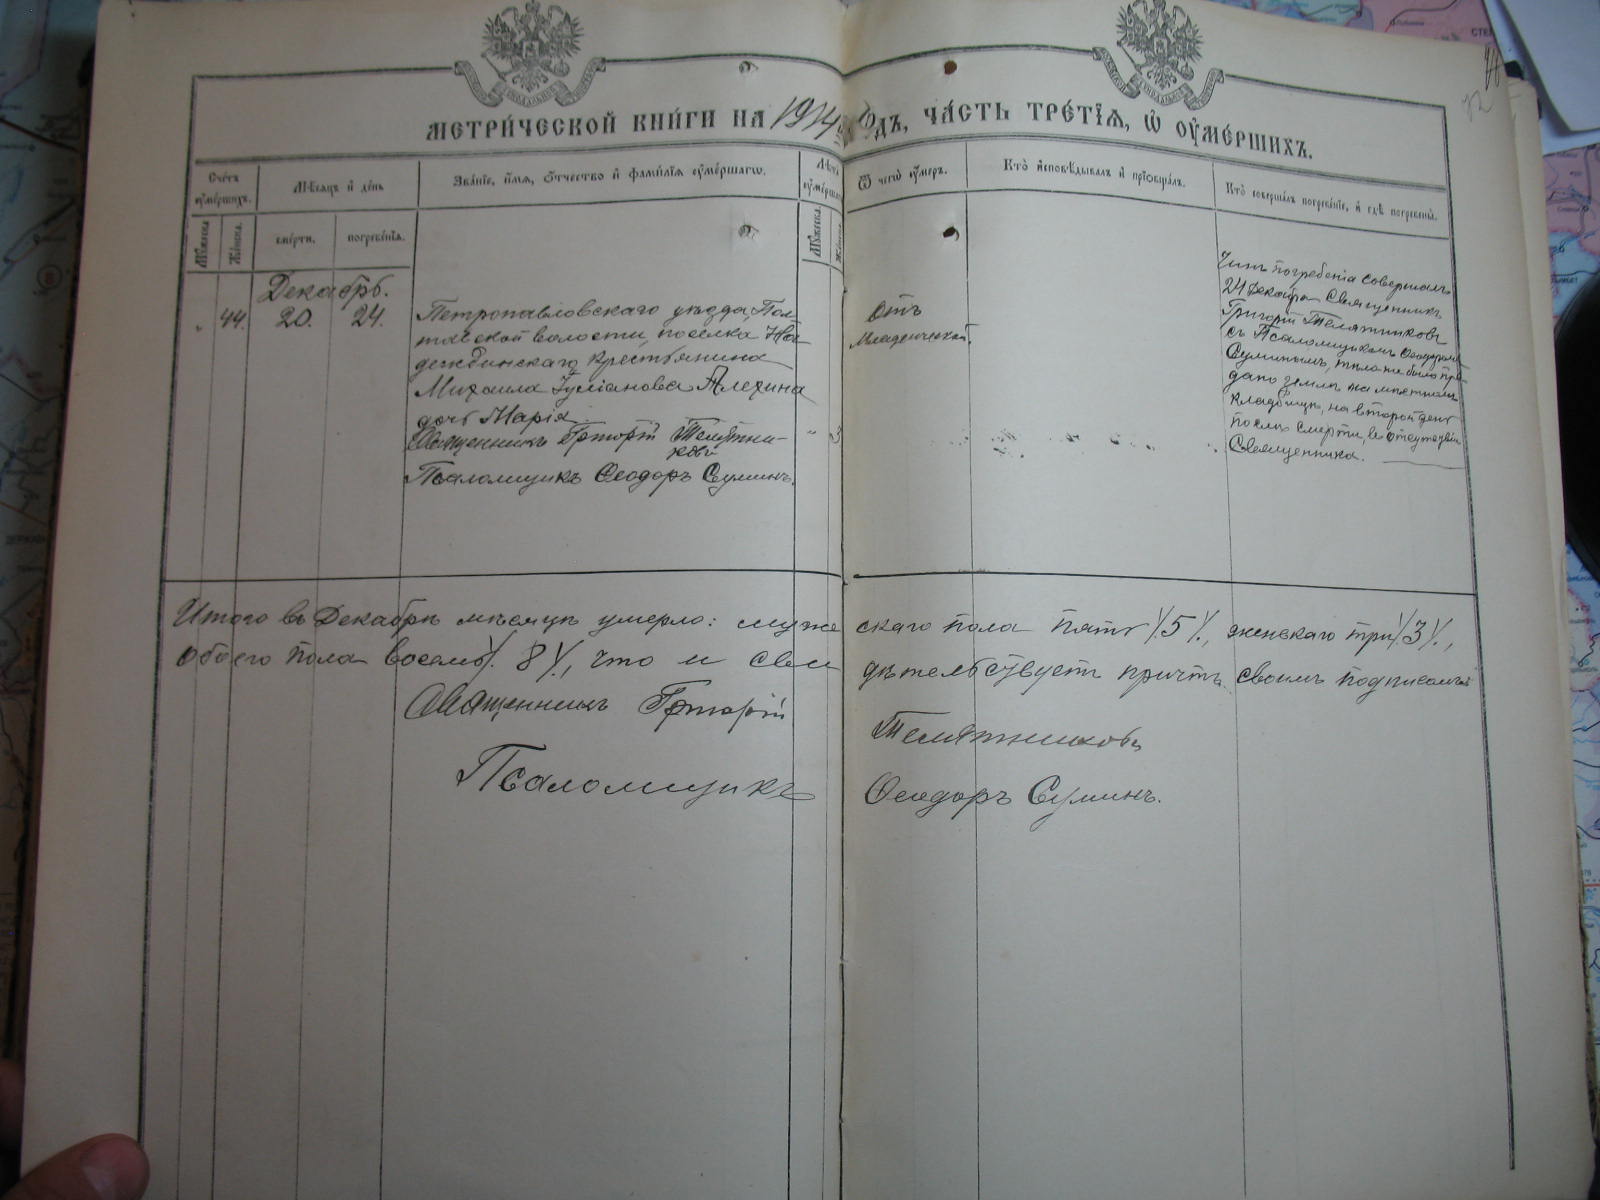 МЕТРИ́ЧЕСКОЙ КНИ́ГИ НА 1914 ГОДЪ, ЧА́СТЬ ТРЕ́ТІѦ, Ѡ ОУМЕ́РШИХЪ.
Сче́тъ оуме́ршихъ.
Мѣ́сяцъ и де́нь
Зва́ніе, и́мя, ѻ́тчество и фами́лія оуме́ршагѡ.
Лѣ́та оуме́ршагѡ
Ѿ чегѡ̀ оу́меръ.
Кто̀ и҆сповѣ́дывалъ и҆ прїѡбща́лъ.
Кто̀ соверша́лъ погребе́нїе, и҆ гдѣ̀ погребены̀.
Мꙋ́жеска.
Же́нска.
сме́рти.
погребе́нїѧ.
Мꙋ́жеска.
Же́нска.
Декабрь.
" 44. 20. 24.
Петропавловскаго уѣзда, Пол-
тавской волости, поселка На-
деждинскаго крестьянина
Михаила Іуліанова Алехина
дочь Марія
Священникъ Григорій Телятни-
ковъ
Псаломщикъ Ѳеодоръ Суминъ.
" 3
Отъ
младенческой.
Чинъ погребенія совершалъ
24 Декабря Священникъ
Григорій Телятниковъ
съ Псаломщикомъ Ѳеодоромъ
Суминымъ, тѣло же было пре-
дано землѣ на мѣстномъ
кладбищѣ, на второй день
послѣ смерти, въ отсутствіи
Священника.
Итого въ Декабрѣ мѣсяцѣ умерло: мужескаго пола пять /5/, женскаго три /3/,
обоего пола восемь /8/, что и свидѣтельствуетъ причтъ своимъ подписомъ
Священникъ Григорій Телятниковъ
Псаломщикъ Ѳеодоръ Суминъ.